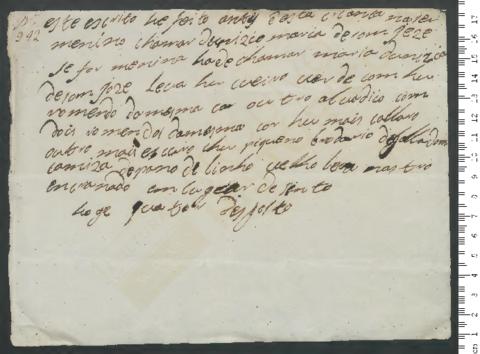 Nº
942
este escrito he feito antes desta criansa naser
menino chamar dunizio maria de som jeze
se for menina ha de chamar maria dunizia
de som joze leva hu cueiro verde com hu
romendo da mesma cor outro alvadico com
dois romendos da mesma cor hu mais collaro
outro mais escuro hu piqueno bedaco
camiza de pano de linho velho leva nastro
encarnado em lugar de sinto
hoge quatro